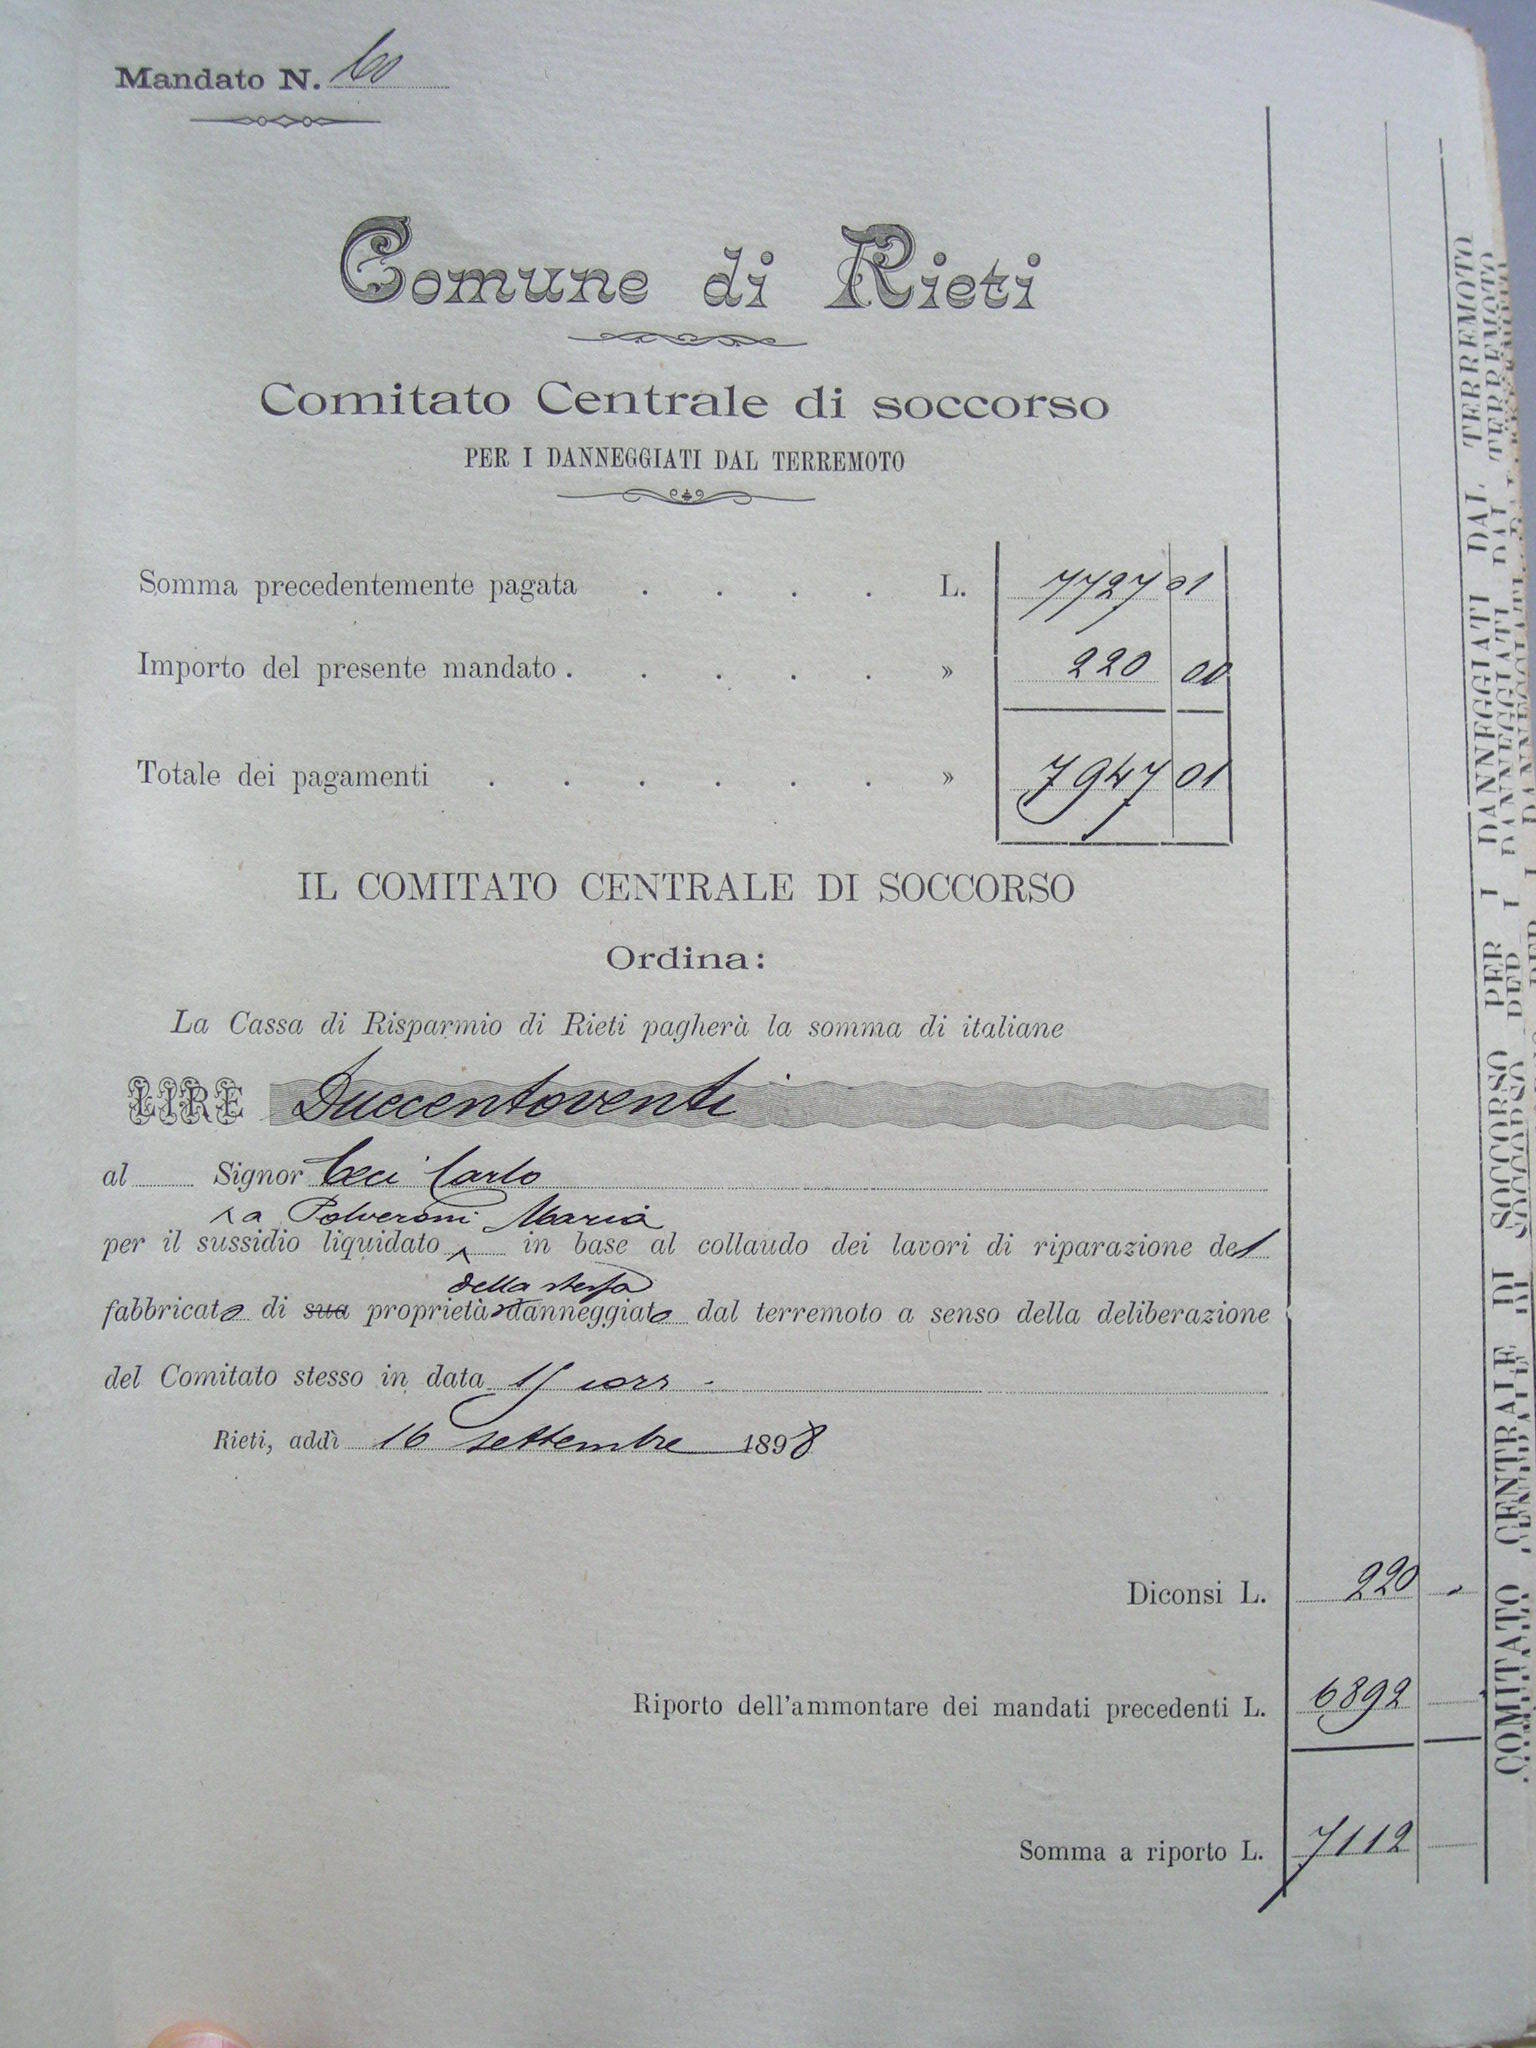 Mandato N. 60
Comune di Rieti
Comitato Centrale di soccorso
PER I DANNEGGIATI DAL TERREMOTO
Somma precedentemente pagata . . . . L. 7727 01
Importo del presente mandato . . . . . » 220 00
Totale dei pagamenti . . . . . . » 7947 01
IL COMITATO CENTRALE DI SOCCORSO
Ordina:
La Cassa di Risparmio di Rieti pagherà la somma di italiane
LIRE Duccentoventi
al Signor Ceci Carlo
a Polveroni Maria
per il sussidio liquidato in base al collaudo dei lavori di riparazione del
della stessa
fabbricato di sua proprietà danneggiato dal terremoto a senso della deliberazione
del Comitato stesso in data 15 corr -
Rieti, addì 16 settembre 1898
Diconsi L. 220
Riporto dell'ammontare dei mandati precedenti L. 6892
Somma a riporto L. 7112
COMITATO CENTRALE DI SOCCORSO PER I DANNEGGIATI DAL TERREMOTO